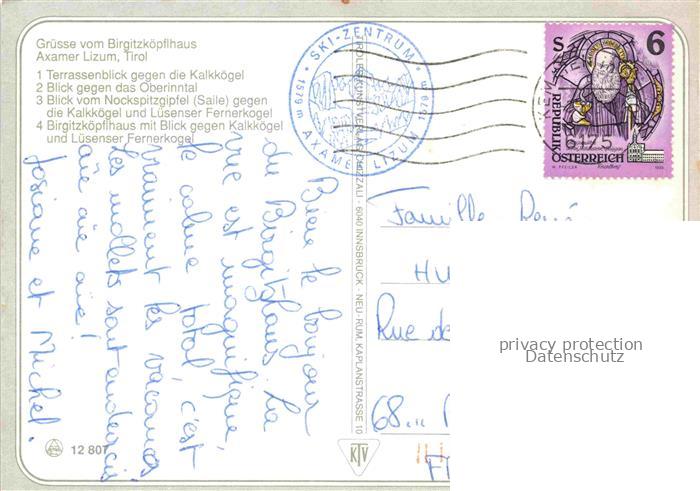 Grüsse vom Birgitzköpflhaus
Axamer Lizum, Tirol
1 Terrassenblick gegen die Kalkkögel
2 Blick gegen das Oberinntal
3 Blick vom Nockspitzgipfel (Saile) gegen
die Kalkkögel und Lüsenser Fernerkogel
4 Birgitzköpflhaus mit Blick gegen Kalkkögel
und Lüsenser Fernerkogel
SKI-ZENTRUM
AXAMER LIZUM
1579 m
S 6
REPUBLIK
ÖSTERREICH
6175
TIROLER KUNSTVERLAG CHIZZALI - 6040 INNSBRUCK - NEU-RUM, KAPLANSTRASSE 10
Bien le bonjour
du Birgitzhaus La
vue est magnifique
le calme total c'est
vraiment les vacances
les mollets sont endurcis
aïe aïe aïe!
Josiane et Michel.
Famille René
HU
Rue de
68...
F
privacy protection
Datenschutz
12 807
KTV